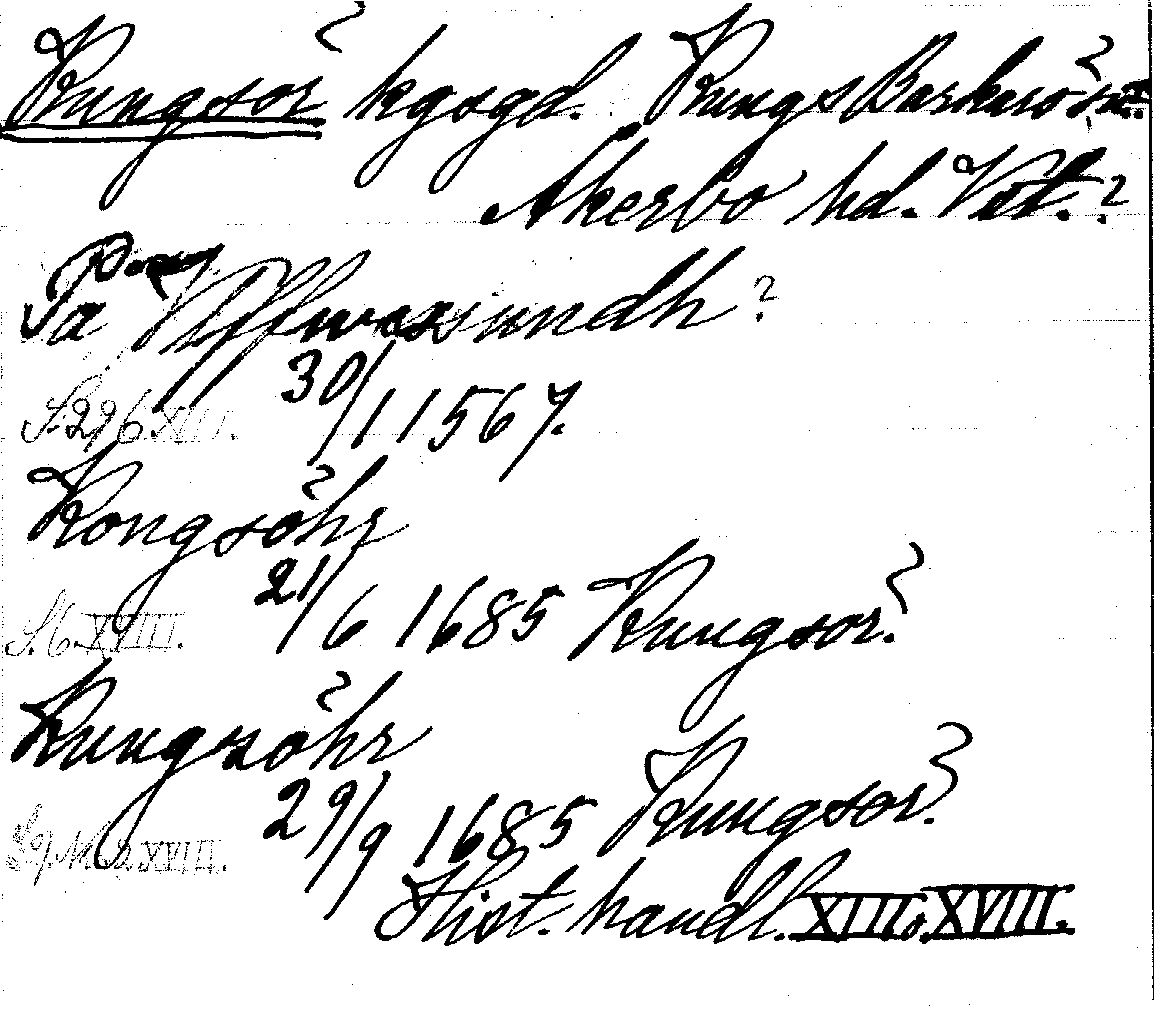 Kungsör kgsgd. Kungs Barkarö sn.
Åkerbo hd. Vstl.?
På Vlffwassundh?
S. 296 XIII. 30/11 1567.
Kongsöhr
S. 6. XVIII. 21/6 1685 Kungsör.
Kungsöhr
29/9 1685 Kungsör.
Hist. handl. XIII o. XVIII.